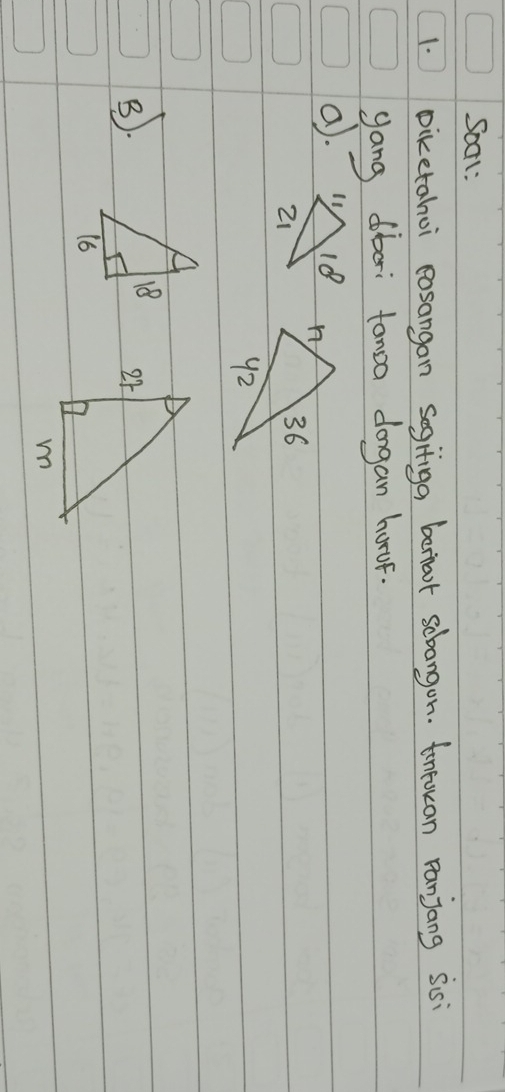 Soal:
1. Diketahui pasangan segitiga berikut sebangun. tentukan panjang sisi
yang diberi tanda dengan huruf.
a).
11
18
21
n
36
42
B).
18
16
27
m